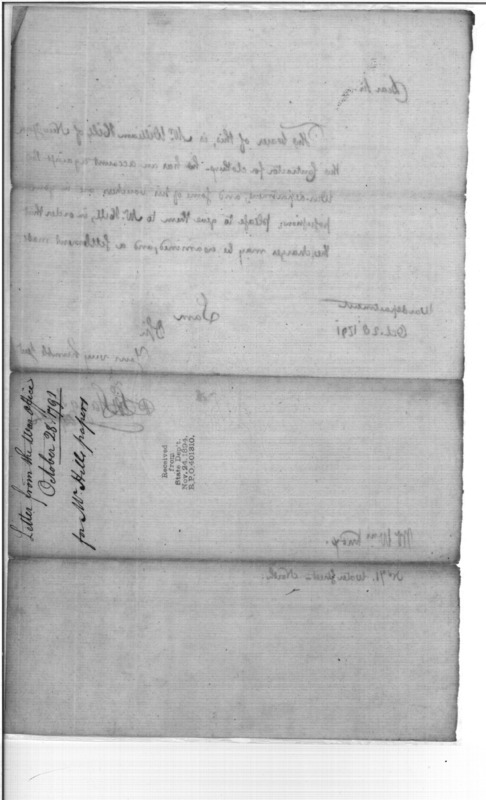 Dear Sir,
The bearer of this, is Mr. William Hill of New York
the Contractor for clothing. he has an account against the
War department, and some of his vouchers are in your
possession, please to give them to Mr. Hill, in order that
the charges may be examined, and a settlement made
I am
Sir
Your very humble Servt
War department
Oct. 28 1791
Mr. Wm Knox.
No 71. Water Street - North.
Letter from the War Office
October 28. 1791
for Mr Hills papers
Received
from
State Dep't.
Nov. 24, 1894.
R.P.O. 401310.